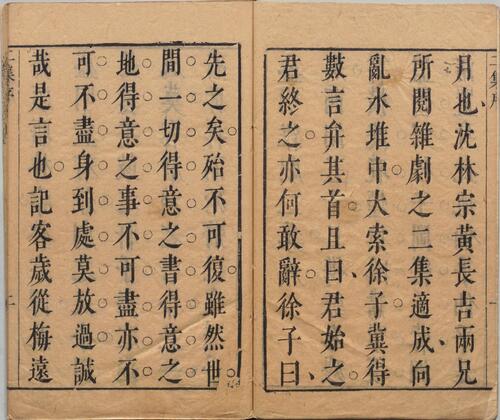 月也沈林宗黃長吉兩兄
所閱雜劇之二集適成向
亂氷堆中大索徐子冀得
數言弁其首且曰君始之
君終之亦何敢辭徐子曰
先之矣殆不可復雖然世
間一切得意之書得意之
地得意之事不可盡亦不
可不盡身到處莫放過誠
哉是言也記客歲從梅遠